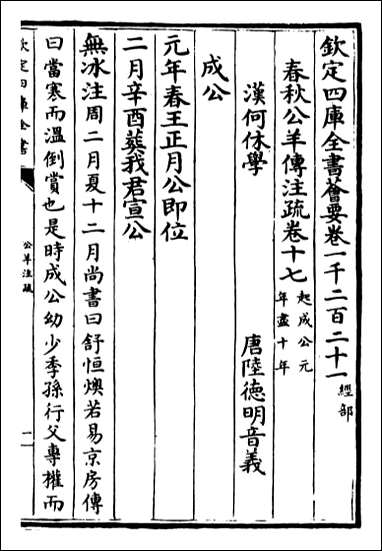 欽定四庫全書薈要卷一千二百二十一 經部
春秋公羊傳注疏卷十七 起成公元年盡十年
漢何休學 唐陸德明音義
成公
元年春王正月公即位
二月辛酉葬我君宣公
無冰注周二月夏十二月尚書曰舒恒燠若易京房傳
曰當寒而溫倒賞也是時成公幼少季孫行父專權而
欽定四庫全書
公羊注疏